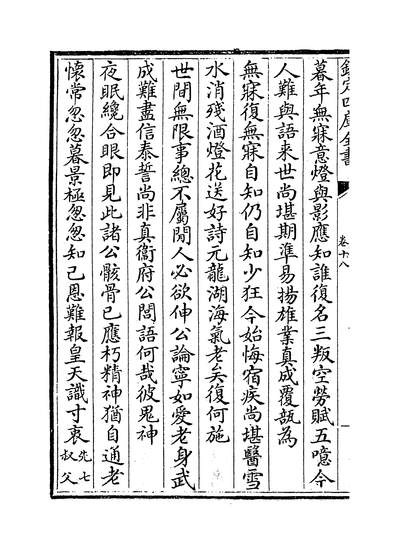 欽定四庫全書
卷十八
暮年無寐意燈與影應知誰復名三叛空勞賦五噫今
人難與語来世尚堪期準易揚雄業真成覆瓿為
無寐復無寐自知仍自知少狂今始悔宿疾尚堪醫雪
水消殘酒燈花送好詩元龍湖海氣老矣復何施
世間無限事總不屬閒人必欲伸公論寧如愛老身武
成難盡信泰誓尚非真衞府公閤語何哉彼鬼神
夜眠纔合眼即見此諸公骸骨已應朽精神猶自通老
懷常忽忽暮景極怱怱知己恩難報皇天識寸衷
先七
叔父